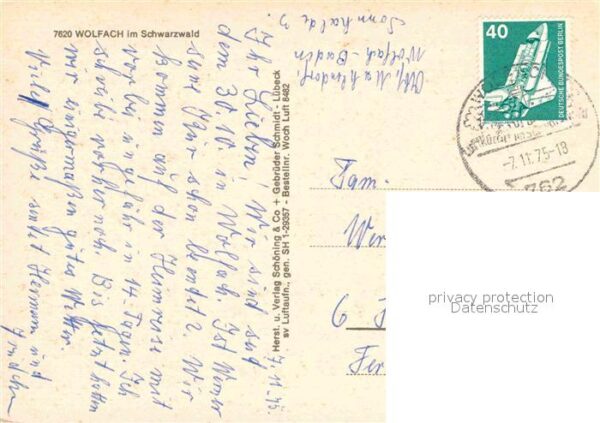 7620 WOLFACH im Schwarzwald
7.11.75.
Ihr Lieben! Wir sind seit
dem 30.10 in Wolfach. Ist Werner
seine Kur schon beendet? Wir
kommen auf der Heimreise mit
vorbei ungefähr in 14 Tagen. Ich
schreibe vorher noch. Bis jetzt hatten
wir einigermaßen gutes Wetter.
Viele Grüße sendet Hermann und
Abs.
Wolfach-Baden
Sonnhalde 3.
Herst. u. Verlag Schöning & Co + Gebrüder Schmidt - Lübeck
sv Luftaufn., gen. SH 1-29357 - Bestellnr. Woch Luft 8482
40
DEUTSCHE BUNDESPOST BERLIN
-7.11.75-18
762
Fam.
Wer
6
Fer
privacy protection
Datenschutz